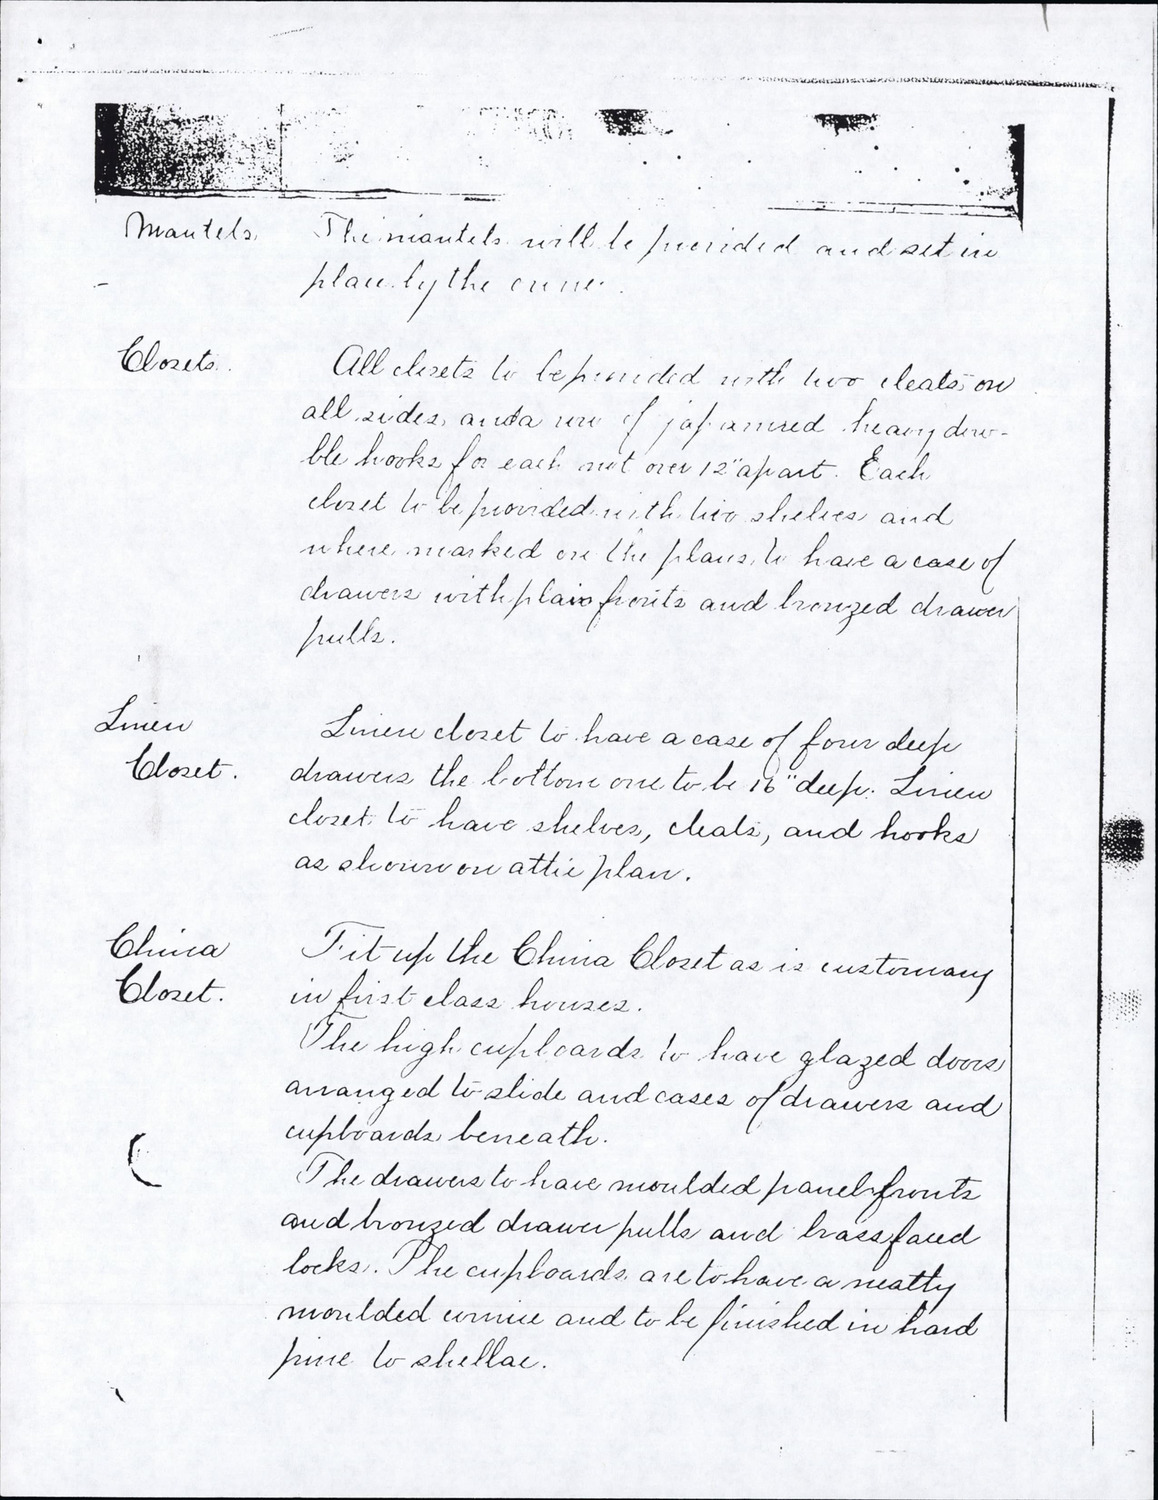 Mantels. The mantels will be provided and set in
place by the owner.
Closets. All closets to be provided with two cleats on
all sides, and a row of japanned heavy dou-
ble hooks for each not over 12" apart. Each
closet to be provided with two shelves and
where marked on the plans, to have a case of
drawers with plain fronts and bronzed drawer
pulls.
Linen Linen closet to have a case of four deep
Closet. drawers the bottom one to be 16" deep. Linen
closet to have shelves, cleats, and hooks
as shown on attic plan.
China Fit up the China Closet as is customary
Closet. in first class houses.
The high cupboards to have glazed doors
arranged to slide and cases of drawers and
cupboards beneath.
The drawers to have moulded panel fronts
and bronzed drawer pulls and brass faced
locks. The cupboards are to have a neatly
moulded cornice and to be finished in hard
pine to shellac.